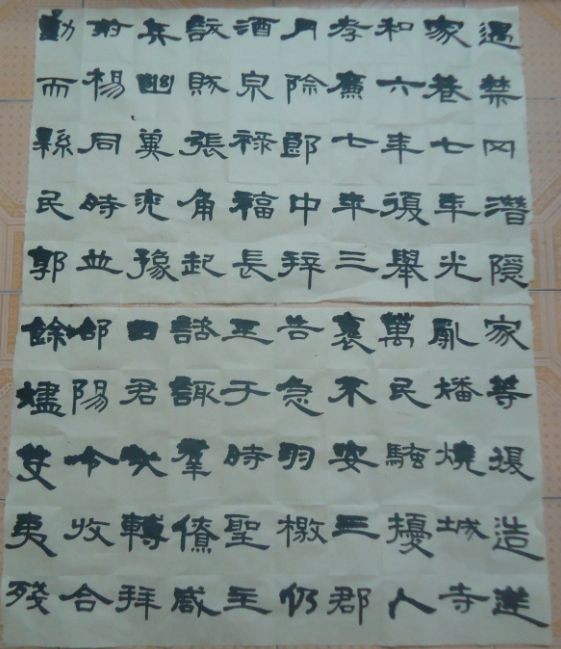 遇禁网潛隱
家巷七年光
和六年復舉
孝廉七年三
月除郎中拜
酒泉祿福長
訞賊張角起
兵幽冀兗豫
荊楊同時並
動而縣民郭
家等復造逆
亂燔燒城寺
萬民騷擾人
裹不安三郡
告急羽檄仍
至于時聖主
諮諏羣僚咸
曰君哉轉拜
郃陽令收合
餘燼芟夷殘